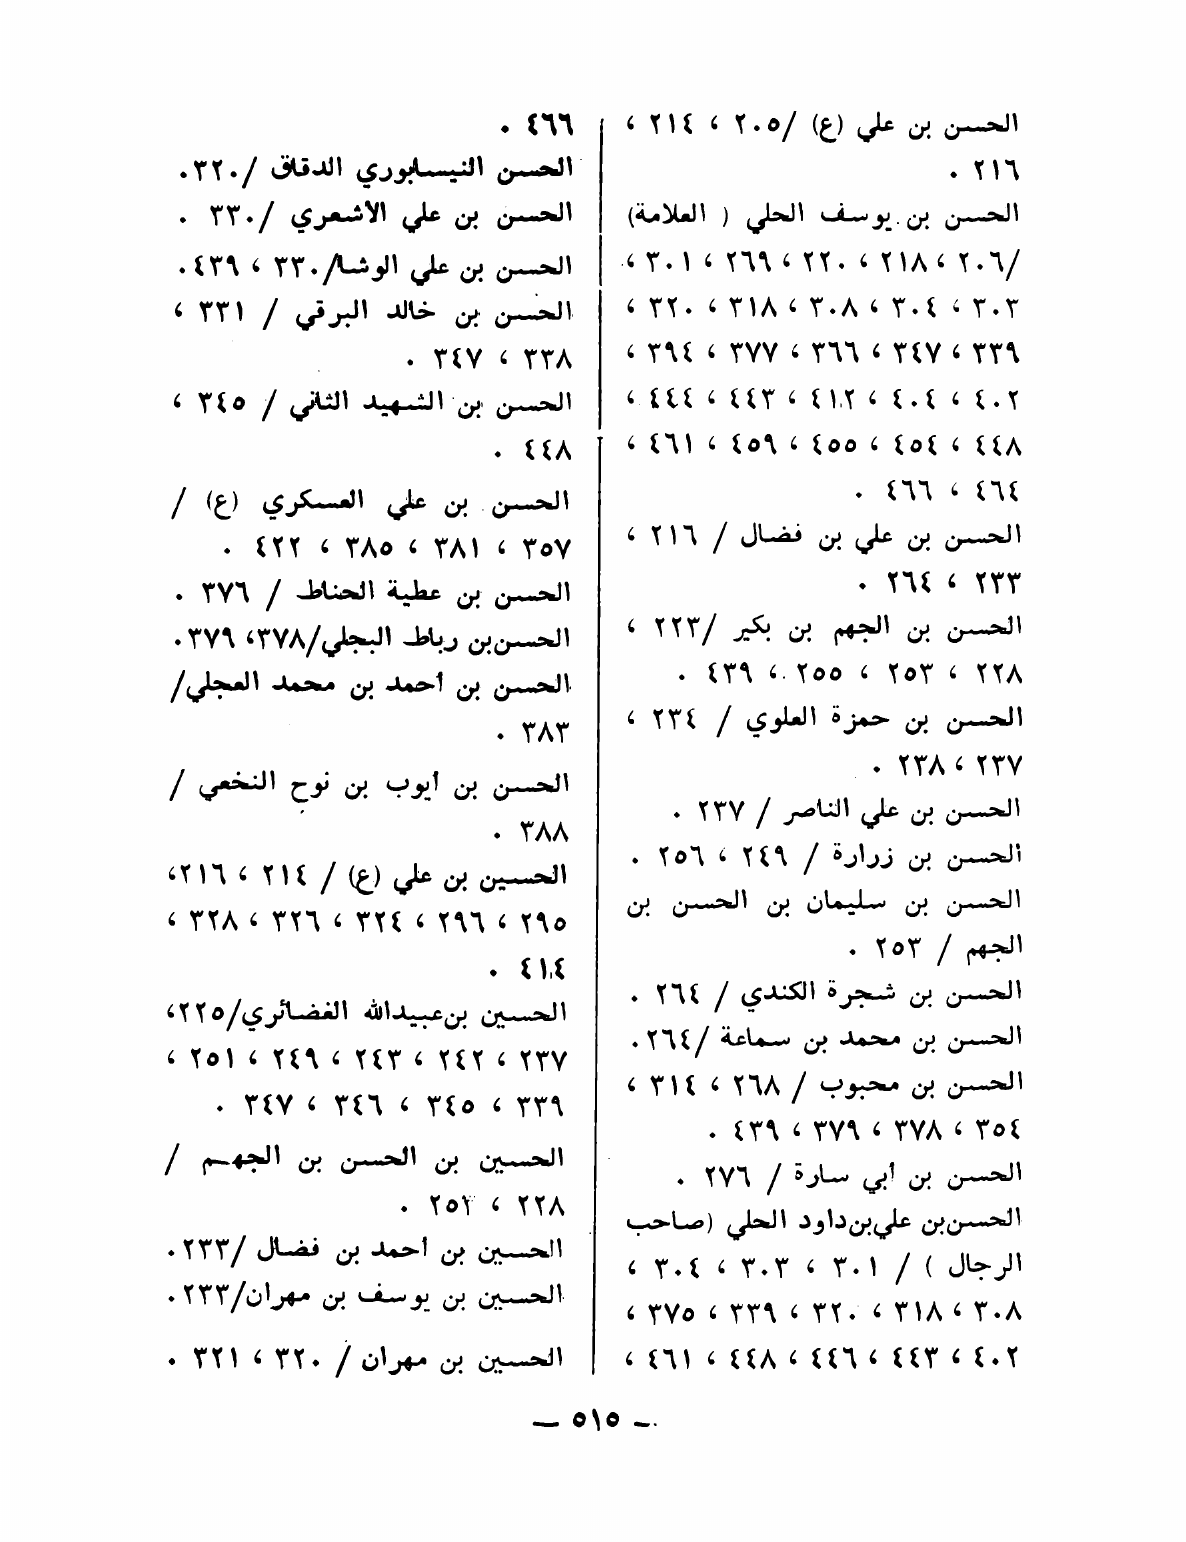 الحسن بن علي (ع) /٢٠٥ ، ٢١٤ ،
٢١٦ .
الحسن بن يوسف الحلي ( العلامة)
/٢٠٦ ، ٢١٨ ، ٢٢٠ ، ٢٦٩ ، ٣٠١ ،
٣٠٣ ، ٣٠٤ ، ٣٠٨ ، ٣١٨ ، ٣٢٠ ،
٣٣٩ ، ٣٤٧ ، ٣٦٦ ، ٣٧٧ ، ٣٩٤ ،
٤٠٢ ، ٤٠٤ ، ٤١٢ ، ٤٤٣ ، ٤٤٤ ،
٤٤٨ ، ٤٥٤ ، ٤٥٥ ، ٤٥٩ ، ٤٦١ ،
٤٦٤ ، ٤٦٦ .
الحسن بن علي بن فضال / ٢١٦ ،
٢٣٣ ، ٢٦٤ .
الحسن بن الجهم بن بكير /٢٢٣ ،
٢٢٨ ، ٢٥٣ ، ٢٥٥ ، ٤٣٩ .
الحسن بن حمزة العلوي / ٢٣٤ ،
٢٣٧ ، ٢٣٨ .
الحسن بن علي الناصر / ٢٣٧ .
الحسن بن زرارة / ٢٤٩ ، ٢٥٦ .
الحسن بن سليمان بن الحسن بن
الجهم / ٢٥٣ .
الحسن بن شجرة الكندي / ٢٦٤ .
الحسن بن محمد بن سماعة /٢٦٤ .
الحسن بن محبوب / ٢٦٨ ، ٣١٤ ،
٣٥٤ ، ٣٧٨ ، ٣٧٩ ، ٤٣٩ .
الحسن بن أبي سارة / ٢٧٦ .
الحسن بن علي بن داود الحلي (صاحب
الرجال ) / ٣٠١ ، ٣٠٣ ، ٣٠٤ ،
٣٠٨ ، ٣١٨ ، ٣٢٠ ، ٣٣٩ ، ٣٧٥ ،
٤٠٢ ، ٤٤٣ ، ٤٤٦ ، ٤٤٨ ، ٤٦١ ،
٤٦٦ .
الحسن النيسابوري الدقاق /٣٢٠ .
الحسن بن علي الاشعري /٣٣٠ .
الحسن بن علي الوشا/٣٣٠ ، ٤٣٩ .
الحسن بن خالد البرقي / ٣٣١ ،
٣٣٨ ، ٣٤٧ .
الحسن بن الشهيد الثاني / ٣٤٥ ،
٤٤٨ .
الحسن بن علي العسكري (ع) /
٣٥٧ ، ٣٨١ ، ٣٨٥ ، ٤٢٢ .
الحسن بن عطية الحناط / ٣٧٦ .
الحسن بن رباط البجلي/٣٧٨ ، ٣٧٩ .
الحسن بن أحمد بن محمد العجلي/
٣٨٣ .
الحسن بن أيوب بن نوح النخعي /
٣٨٨ .
الحسين بن علي (ع) / ٢١٤ ، ٢١٦ ،
٢٩٥ ، ٢٩٦ ، ٣٢٤ ، ٣٢٦ ، ٣٢٨ ،
٤١٤ .
الحسين بن عبيدالله الغضائري/٢٢٥ ،
٢٣٧ ، ٢٤٢ ، ٢٤٣ ، ٢٤٩ ، ٢٥١ ،
٣٣٩ ، ٣٤٥ ، ٣٤٦ ، ٣٤٧ .
الحسين بن الحسن بن الجهم /
٢٢٨ ، ٢٥٢ .
الحسين بن أحمد بن فضال /٢٣٣ .
الحسين بن يوسف بن مهران/٢٣٣ .
الحسين بن مهران /٣٢٠ ، ٣٢١ .
— ٥١٥ —